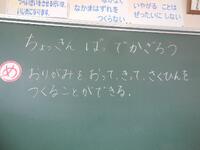 つくらない。
なかまはずれを
いやがる ことは
ぜったいにしない
ちょっきん ぱっ でかざろう
め おりがみを おって、きって、さくひんを
つくることができる。